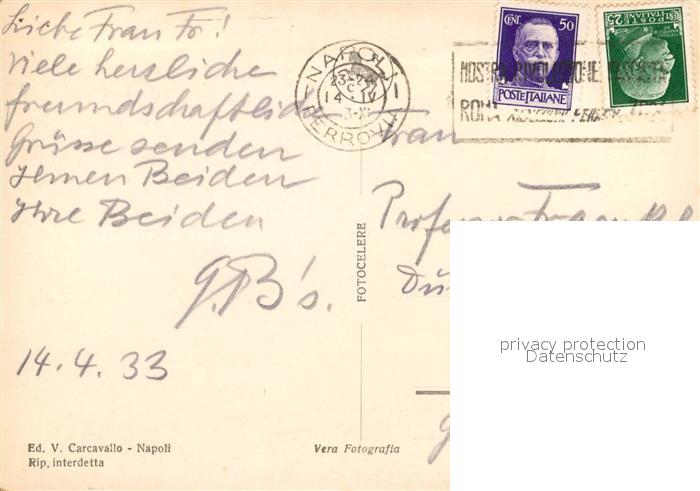 Liebe Frau Fr!
Viele herzliche
freundschaftliche
Grüsse senden
Ihnen Beiden
Ihre Beiden
G.B's.
14.4.33
Ed. V. Carcavallo - Napoli
Rip. interdetta
FOTOCELERE
Vera Fotografia
NAPOLI
23-24
14 IV
FERROVIA
CENT. 50
POSTE ITALIANE
CENT 25
POSTE ITALIANE
MOSTRA RIVOLUZIONE FASCISTA
ROMA RIDUZIONI FERROV.
Frau
Professor
privacy protection
Datenschutz